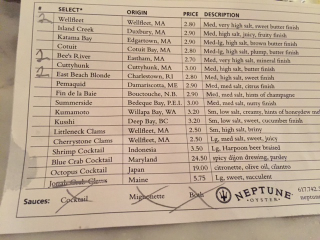 # SELECT* ORIGIN PRICE DESCRIPTION
2 Wellfleet Wellfleet, MA 2.80 Med, very high salt, sweet butter finish
Island Creek Duxbury, MA 2.90 Med, high salt, juicy, fruity finish
Katama Bay Edgartown, MA 2.90 Med-lg, high salt, brown butter finish
Cotuit Cotuit Bay, MA 2.80 Med-lg, high salt, plump, butter finish
2 Bee's River Eastham, MA 2.70 Med, very high salt, mineral finish
Cuttyhunk Cuttyhunk, MA 3.00 Med, high salt, butter finish
2 East Beach Blonde Charlestown, R.I 2.80 Med, high salt, sweet finish
Pemaquid Damariscotta, ME 2.90 Med, med salt, citrus finish
Fin de la Baie Bouctouche, N.B. 2.90 Med, med salt, hints of champagne
Summerside Bedeque Bay, P.E.I. 3.00 Med, med salt, nutty finish
Kumamoto Willapa Bay, WA 3.20 Sm, low salt, creamy, hints of honeydew
Kusshi Deep Bay, BC 3.20 Sm, low salt, sweet, cucumber finish
Littleneck Clams Wellfleet, MA 2.50 Sm, high salt, briny
Cherrystone Clams Wellfleet, MA 2.50 Lg, med salt, sweet, juicy
Shrimp Cocktail Indonesia 3.50 Lg, Harpoon beer braised
Blue Crab Cocktail Maryland 24.50 spicy dijon dressing, parsley
Octopus Cocktail Japan 19.00 citronette, olive oil, cilantro
Jonah Crab Claws Maine 5.75 Lg, sweet, succulent
Sauces: Cocktail Mignonette Both NEPTUNE
OYSTER
617.742